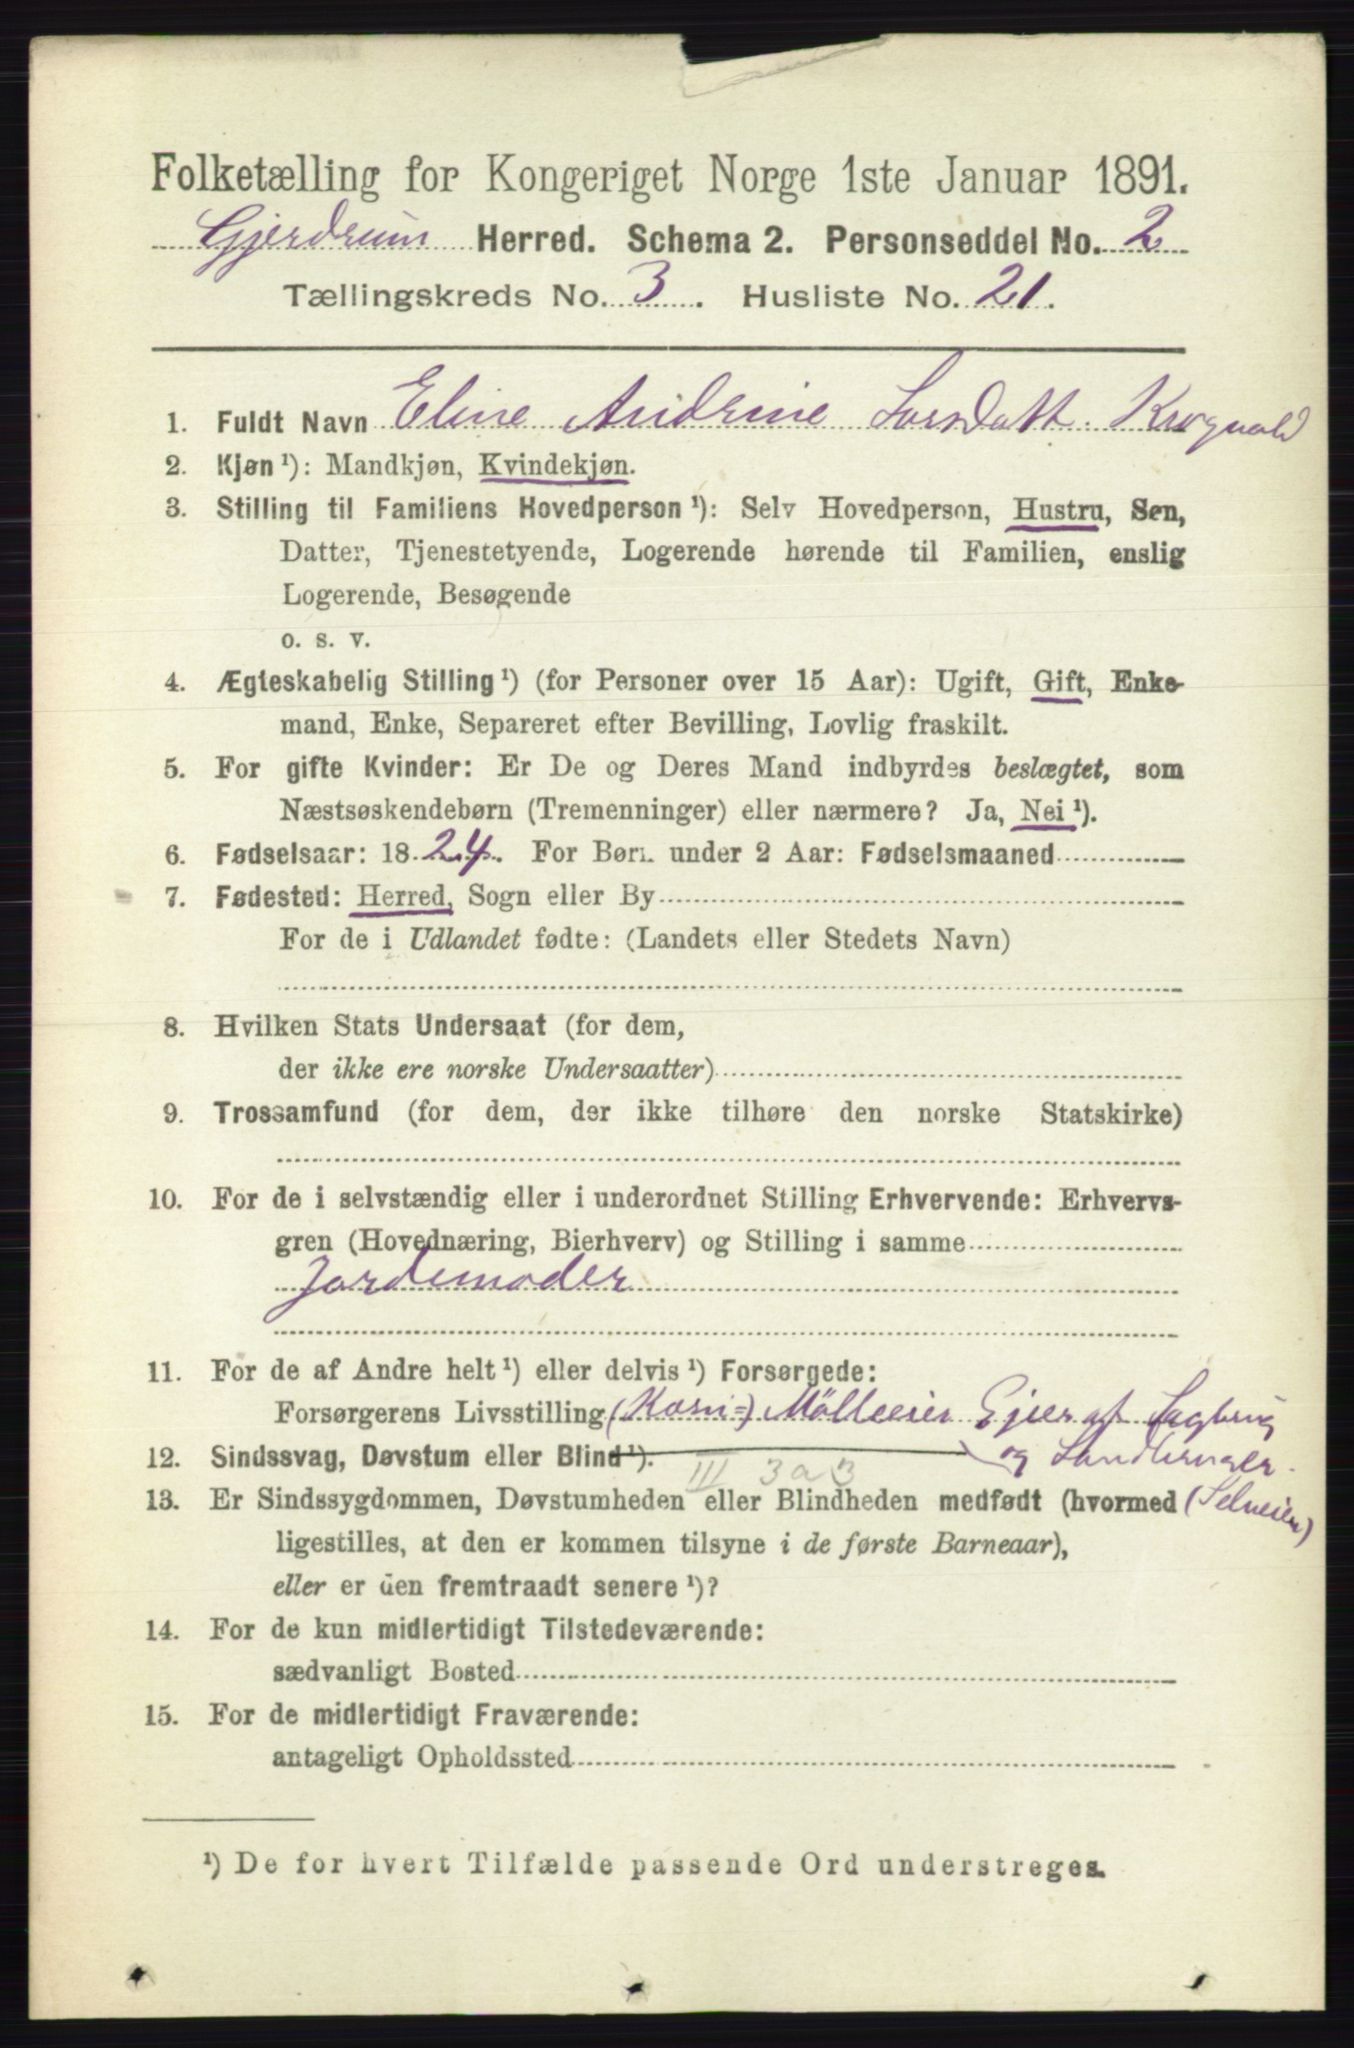 Folketælling for Kongeriget Norge 1ste Januar 1891.
Gjerdrum Herred. Schema 2. Personseddel No. 2
Tællingskreds No. 3. Husliste No. 21.
1. Fuldt Navn Eline Andrine Larsdatt. Krogvold
2. Kjøn ¹): Mandkjøn, Kvindekjøn.
3. Stilling til Familiens Hovedperson ¹): Selv Hovedperson, Hustru, Søn,
Datter, Tjenestetyende, Logerende hørende til Familien, enslig
Logerende, Besøgende
o. s. v.
4. Ægteskabelig Stilling ¹) (for Personer over 15 Aar): Ugift, Gift, Enke-
mand, Enke, Separeret efter Bevilling, Lovlig fraskilt.
5. For gifte Kvinder: Er De og Deres Mand indbyrdes beslægtet, som
Næstsøskendebørn (Tremenninger) eller nærmere? Ja, Nei ¹).
6. Fødselsaar: 1824. For Børn under 2 Aar: Fødselsmaaned
7. Fødested: Herred, Sogn eller By
For de i Udlandet fødte: (Landets eller Stedets Navn)
8. Hvilken Stats Undersaat (for dem,
der ikke ere norske Undersaatter)
9. Trossamfund (for dem, der ikke tilhøre den norske Statskirke)
10. For de i selvstændig eller i underordnet Stilling Erhvervende: Erhvervs-
gren (Hovednæring, Bierhverv) og Stilling i samme
Jordemoder
11. For de af Andre helt ¹) eller delvis ¹) Forsørgede:
Forsørgerens Livsstilling (Korn=) Mölleeier Ejer af Sagbrug
12. Sindssvag, Døvstum eller Blind ¹). og Landbruger
III 3 a 3
13. Er Sindssygdommen, Døvstumheden eller Blindheden medfødt (hvormed (Selveier)
ligestilles, at den er kommen tilsyne i de første Barneaar),
eller er den fremtraadt senere ¹)?
14. For de kun midlertidigt Tilstedeværende:
sædvanligt Bosted
15. For de midlertidigt Fraværende:
antageligt Opholdssted
¹) De for hvert Tilfælde passende Ord understreges.